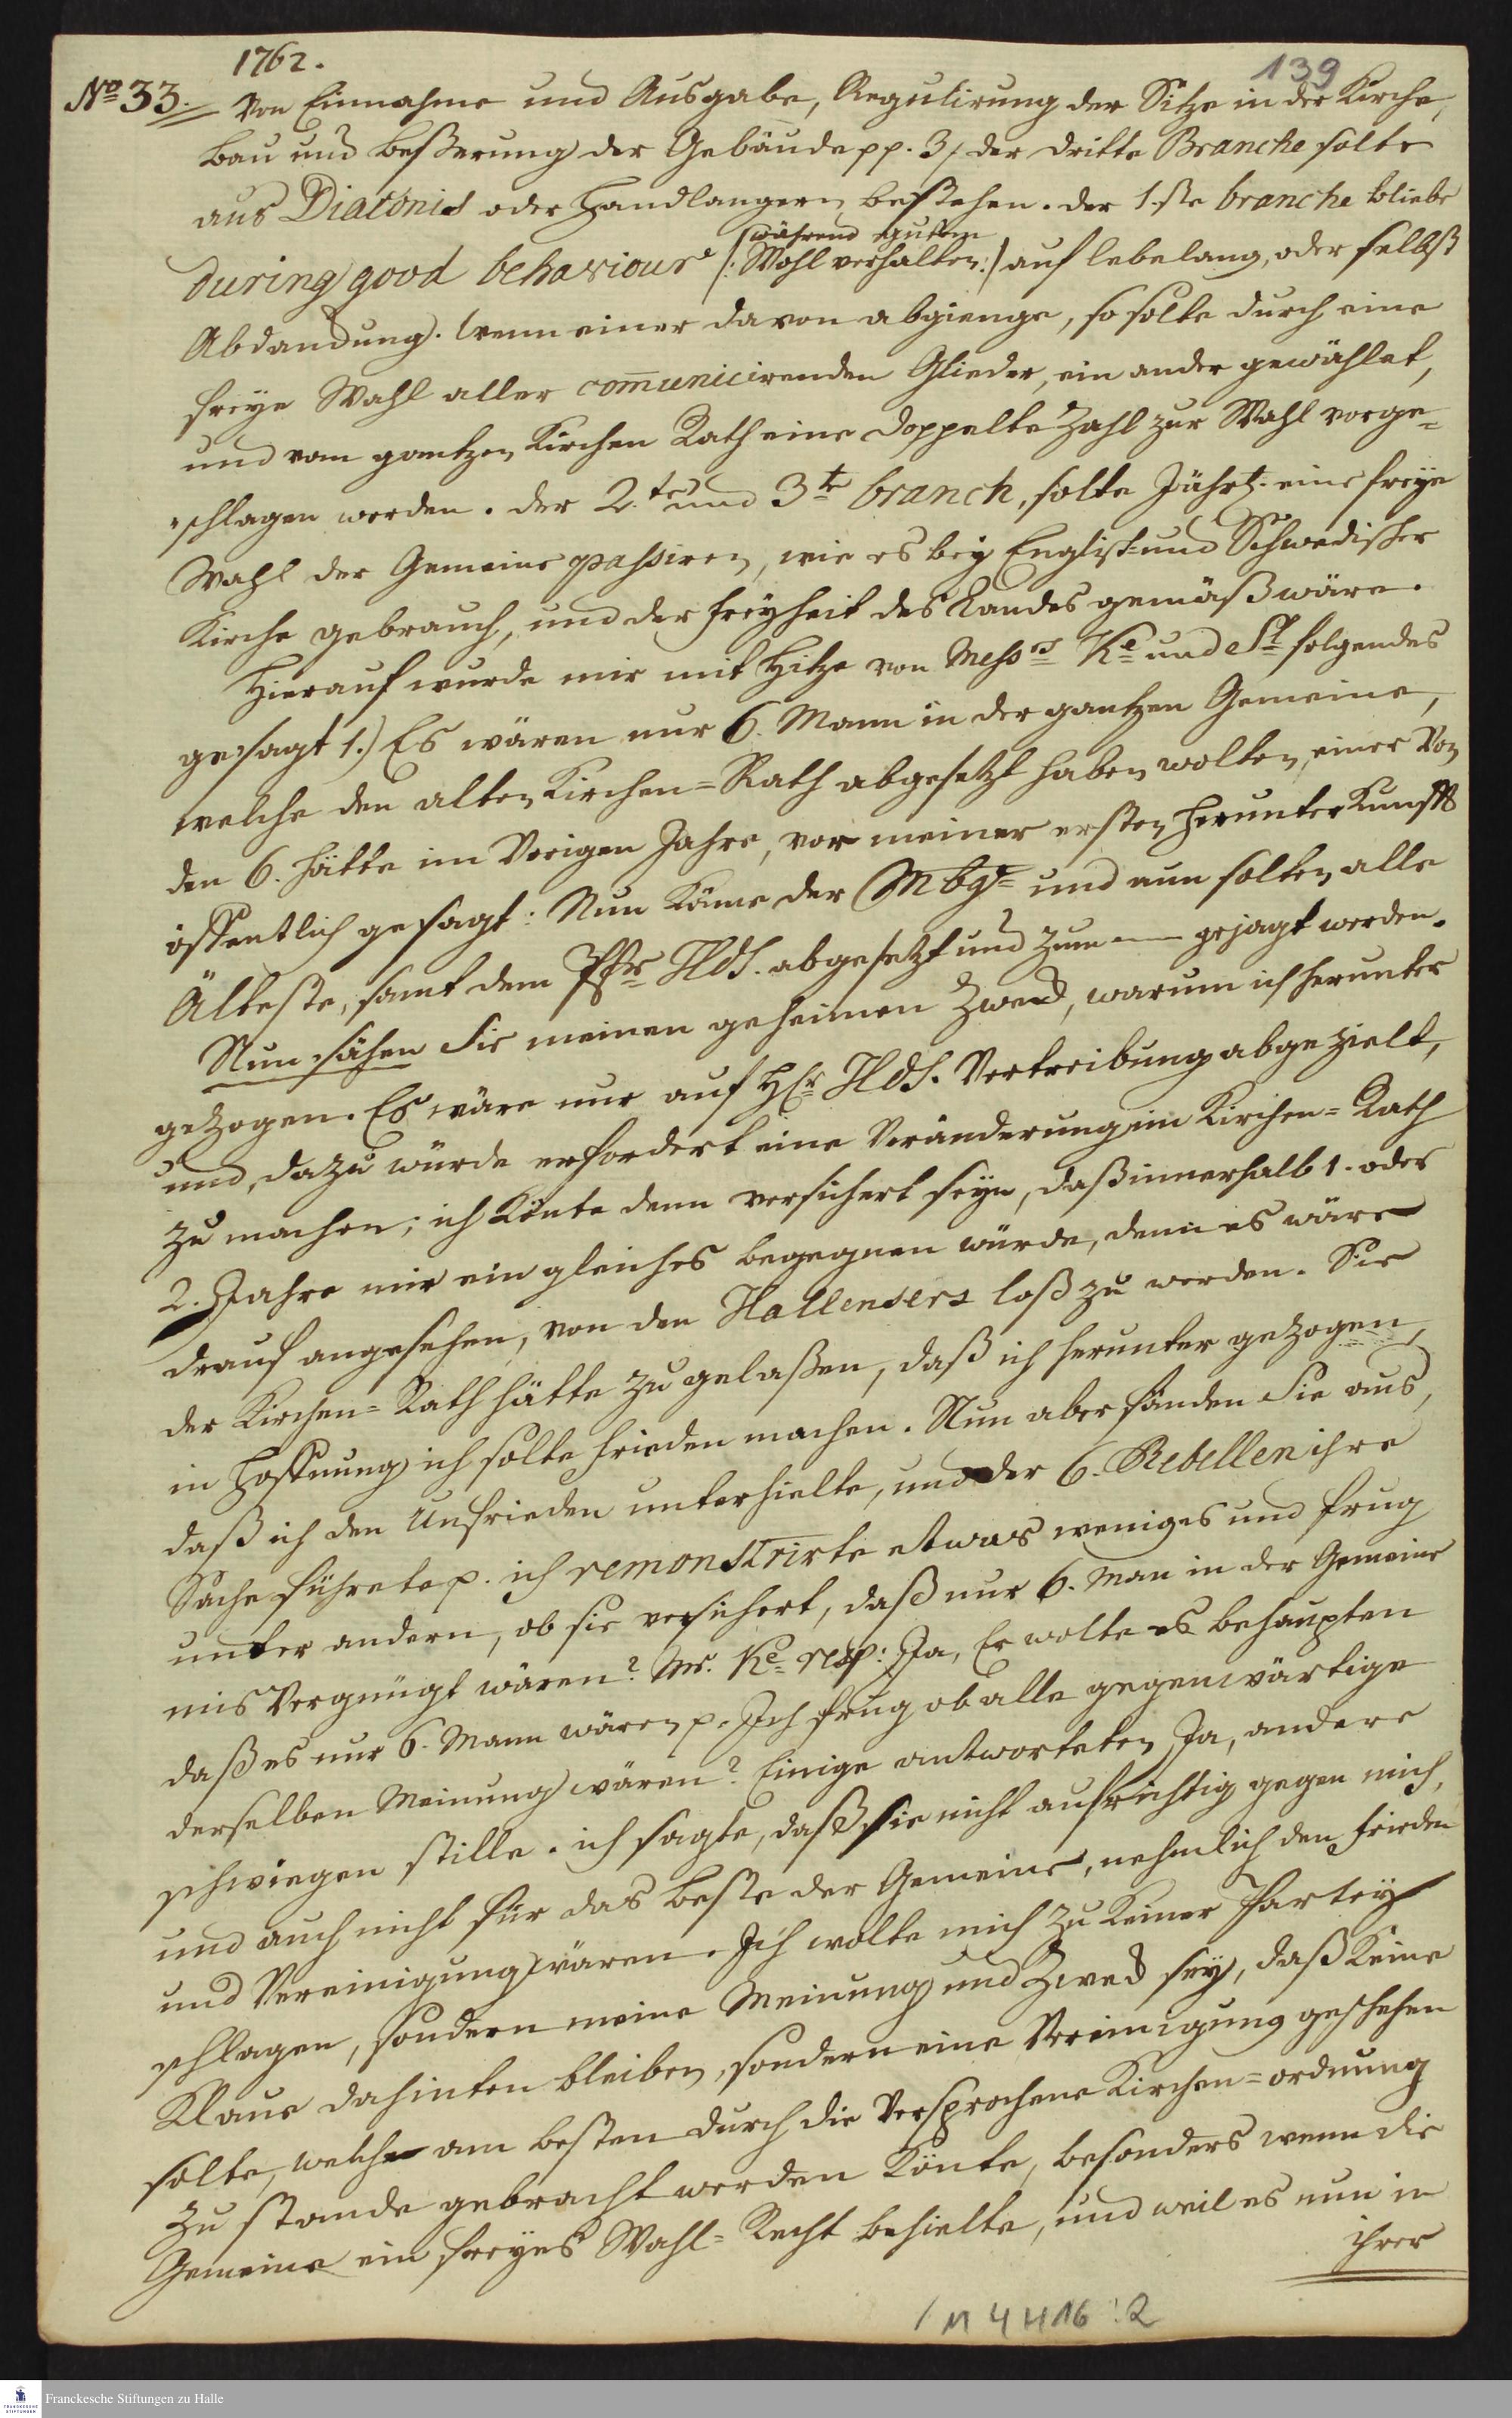 1762.
139
No 33. Von Einnahme und Ausgabe, Regulirung der Sitze in der Kirche,
Bau und Beßerung der Gebäude pp. 3, der dritte Branche solte
aus Diaconis oder Handlangern bestehen. der 1.ste branche bliebe
während guten
during good behaviour /: Wohl verhalten :/ auf lebelang, oder selbst
Abdanckung. wenn einer davon abgienge, so solte durch eine
freye Wahl aller com̅unicirenden Glieder, ein ander gewählet,
und vom gantzen Kirchen Rath eine doppelte Zahl zur Wahl vorge=
schlagen werden. der 2.te und 3te branch, solte Jährl. eine freye
Wahl der Gemeine passiren, wie es bey Englisch= und Schwedischer
Kirche gebrauch, und der freyheit des Landes gemäß wäre.
Hierauf wurde mir mit Hitze von Messrs Ke und St folgendes
gesagt 1.) Es wären nur 6. Mann in der gantzen Gemeine,
welche den alten Kirchen=Rath abgesetzt haben wolten, einer von
den 6. hätte im Vorigen Jahre, vor meiner ersten herunter Kunfft
öffentlich gesagt: Nun käme der Mbg und nun solten alle
Älteste, samt dem Pfr Hds. abgesetzt und zum — gejagt werden.
Nun sähen Sie meinen geheimen Zweck, warum ich herunter
gezogen. Es wäre nur auf HEr Hds. Vertreibung abgezielt,
und dazu würde erfordert eine Veränderung im Kirchen=Rath
zu machen; ich könte denn versichert seyn, daß innerhalb 1. oder
2. Jahre mir ein gleiches begegnen würde, denn es wäre
drauf angesehen, von den Hallensers loß zu werden. Sie
der Kirchen=Rath hätte zu gelaßen, daß ich herunter gezogen,
in Hoffnung ich solte frieden machen. Nun aber fänden Sie aus,
daß ich den Unfrieden unterhielte, und der 6. Rebellen ihre
Sache führete p. ich remonstrirte etwas weniges und frug
unter andern, ob sie versichert, daß nur 6. Man in der Gemeine
mis Vergnügt wären? Mr. Ke resp: Ja, Er wolte es behaupten
daß es nur 6. Mann wären p. Ich frug ob alle gegenwärtige
derselben Meinung wären? Einige antworteten Ja, andere
schwiegen stille. ich sagte, daß sie nicht aufrichtig gegen mich,
und auch nicht für das beste der Gemeine, nehmlich den frieden
und Vereinigung wären. Ich wolte mich zu keiner Partey
schlagen, sondern meine Meinung und Zweck sey, daß keine
Klaue dahinten bleiben, sondern eine Vereinigung geschehen
solte, welche am besten durch die Versprochene Kirchen=ordnung
zu stande gebracht werden könte, besonders wenn die
Gemeine ein freyes Wahl=Recht behielte, und weil es nun in
ihrer
/ M 4 H 16 : 2
Franckesche Stiftungen zu Halle